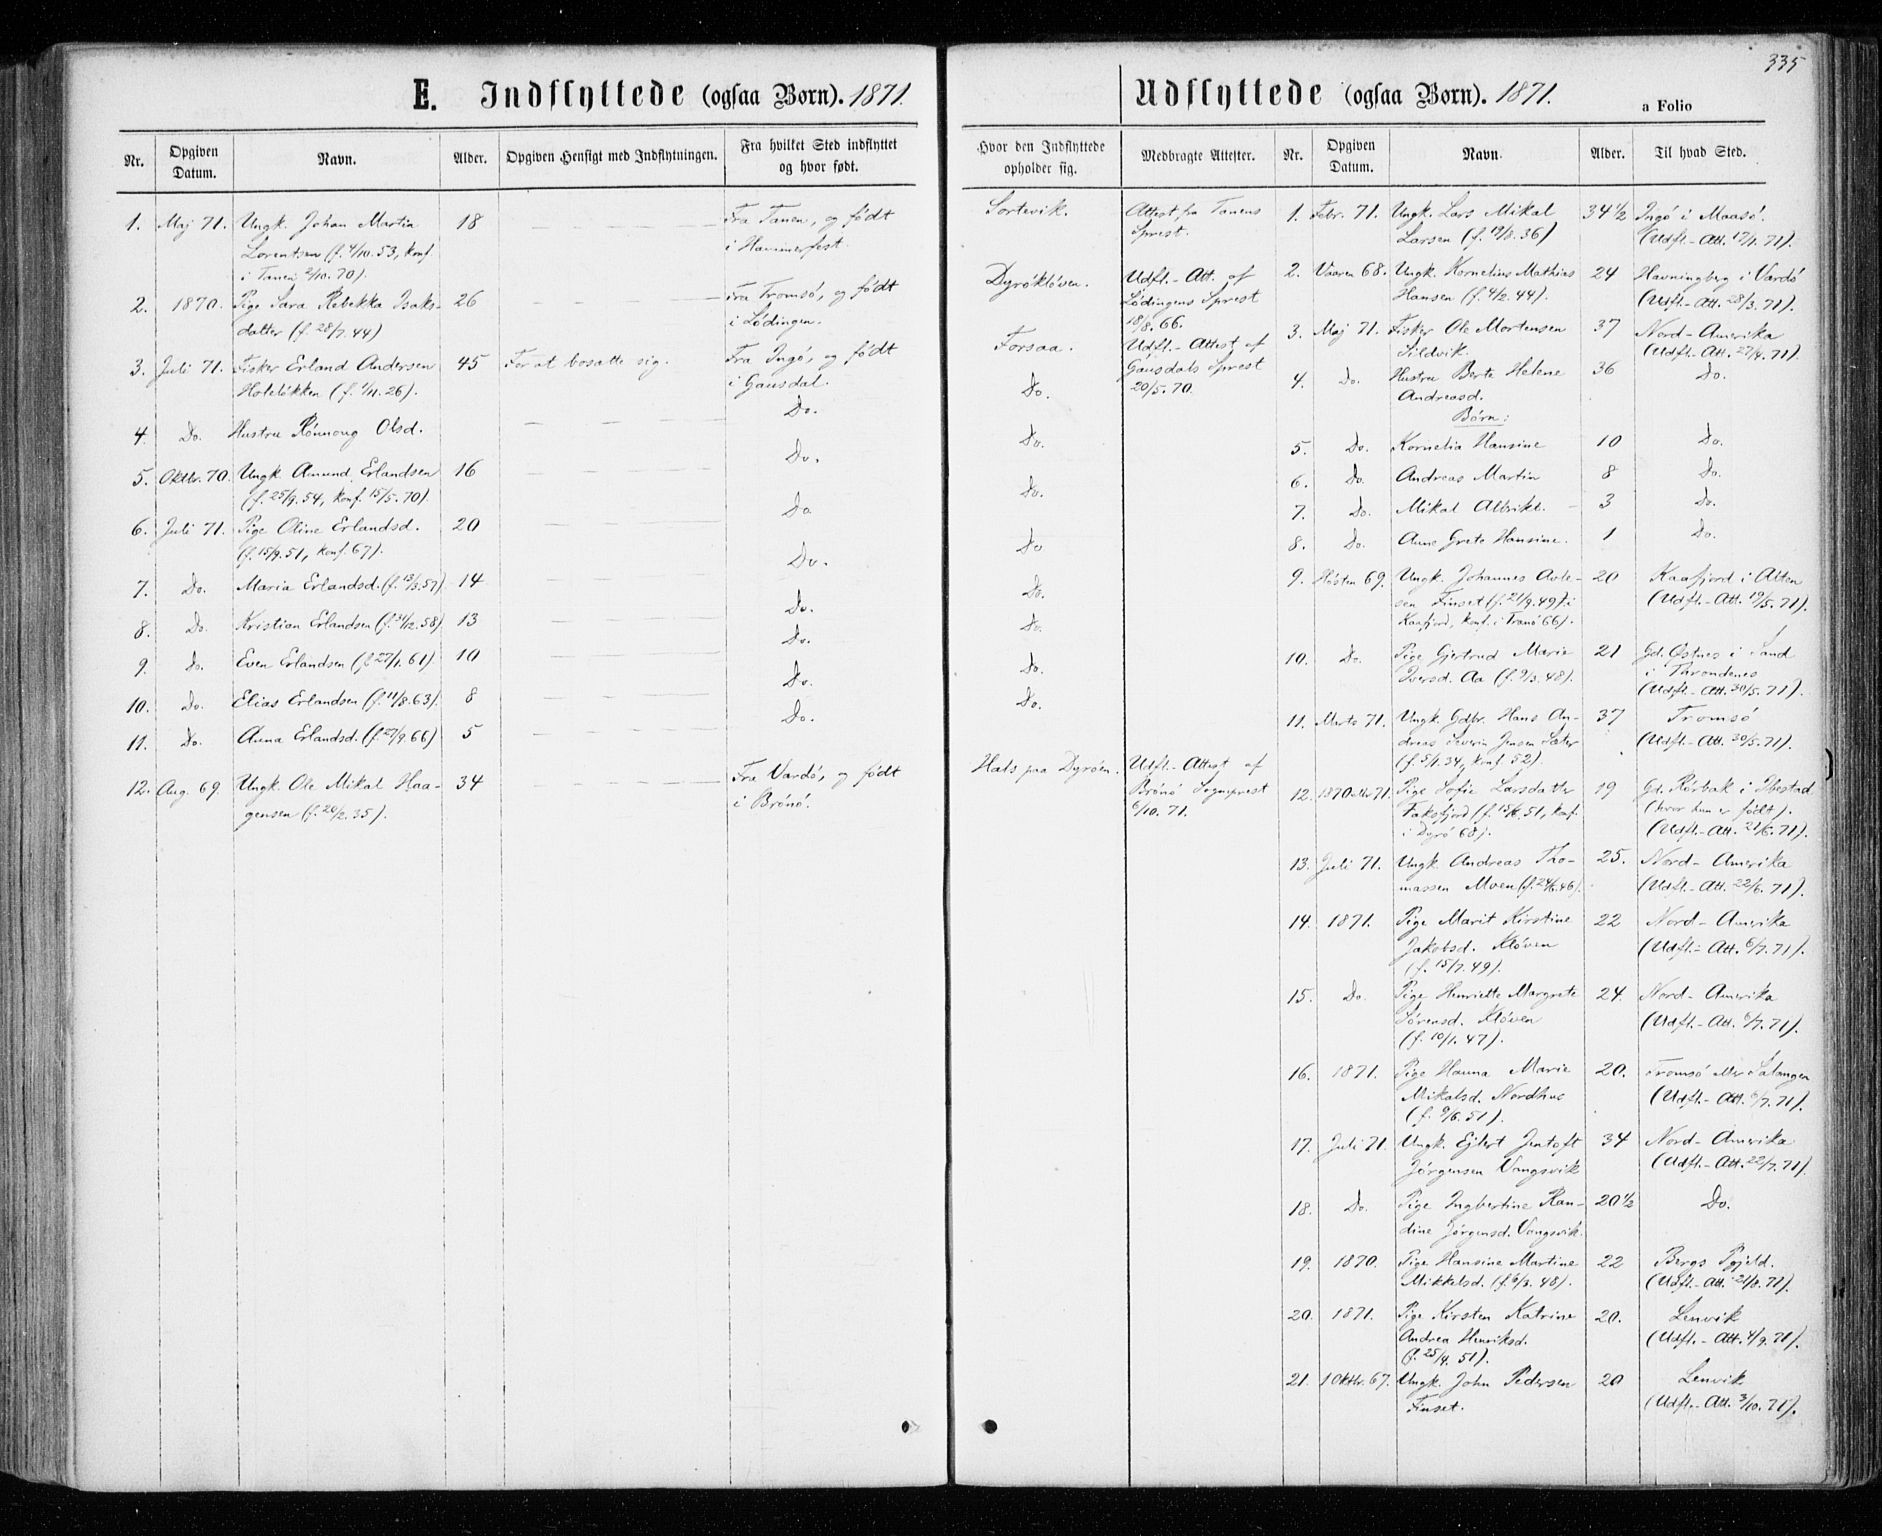 335
E. Indflyttede (ogsaa Børn). 1871.
Nr.
Opgiven Datum.
Navn.
Alder.
Opgiven Hensigt med Indflytningen.
Fra hvilket Sted indflyttet og hvor født.
Hvor den Indflyttede opholder sig.
Medbragte Attester.
1. Maj 71. Ungk. Johan Martin 18 Fra Tanen, og født Sortevik. Attest fra Tanens
Lorentsen (f. 4/10.53, konf. i Hammerfest. Sprest.
i Tanen 2/10.70).
2. 1870. Pige Sara Rebekka Isaks- 26 Fra Tromsö, og født Dyröklöven. Udfl.-Att. af
datter (f. 28/7.44) i Lödingen. Lödingens Sprest
18/8.66.
3. Juli 71. Fisker Erland Andersen 45 For at bosætte sig. Fra Ingö, og født Forsaa. Udfl.-Attest af
Holelökken (f. 1/11.26). i Gausdal. Gausdals Sprest
20/5.70.
4. Do. Hustru Rönnoug Olsd. Do. Do.
5. Oktbr. 70. Ungk. Amund Erlandsen 16 Do. Do.
(f. 25/9.54, konf. 15/5.70)
6. Juli 71. Pige Oline Erlandsd. 20 Do. Do.
(f. 15/9.51, konf. 67).
7. Do. Maria Erlandsd. (f. 13/3.57) 14 Do. Do
8. Do. Kristian Erlandsen (f. 31/12.58) 13 Do. Do.
9. Do. Even Erlandsen (f. 27/1.61) 10 Do. Do.
10. Do. Elias Erlandsen (f. 11/8.63). 8 Do. Do.
11. Do. Anna Erlandsd. (f. 27/9.66) 5 Do. Do.
12. Aug. 69. Ungk. Ole Mikal Haa- 34 Fra Vardö, og født Hals paa Dyröen. Udfl.-Attest af
gensen (f. 20/2.35). i Brönö. Brönö Sogneprest
6/10.71.
Udflyttede (ogsaa Børn). 1871.
a Folio
Nr.
Opgiven Datum.
Navn.
Alder.
Til hvad Sted.
1. Febr. 71. Ungk. Lars Mikal 34 1/2 Ingö i Maasö.
Larsen (f. 36) (Udfl.-Att. 17/1.71).
2. Vaaren 68. Ungk. Kornelius Mathias 24 Havningberg i Vardö
Hansen (f. 4/2.44). (Udfl.-Att. 28/3.71).
3. Maj 71. Fisker Ole Mortensen 37 Nord-Amerika
Sildvik. (Udfl.-Att. 27/4.71).
4. Do. Hustru Berte Helene 36 Do.
Andreasd.
Börn:
5. Do. Kornelia Hansine 10 Do.
6. Do. Andreas Martin 8 Do.
7. Do. Mikal Albrikt. 3 Do.
8. Do. Anne Grete Hansine. 1 Do.
9. Hösten 69. Ungk. Johannes Avle- 20 Kaafjord i Alten
sen Finset (f. 21/9.49) i (Udfl.-Att. 19/5.71).
Kaafjord, konf. i Tranö 66).
10. Do. Pige Gjertrud Marie 21 Gd. Östnes i Sand
Iversd. Aa (f. 9/3.48). i Throndenes
(Udfl.-Att. 30/5.71).
11. Marts 71. Ungk. Gdbr. Hans An- 37 Tromsö
dreas Severin Jensen Sæter (Udfl.-Att. 30/5.71).
(f. 5/1.34, konf. 52).
12. 1870 71. Pige Sofie Larsdatter 19 Gd. Rörbak i Ibestad
Faksfjord (f. 51, konf. (hvor hun er födt).
i Dyrö 68). (Udfl.-Att. 21/6.71).
13. Juli 71. Ungk. Andreas Tho- 25. Nord-Amerika
massen Moen (f. 24/6.46). (Udfl.-Att. 22/6.71).
14. 1871. Pige Marit Kirstine 22 Nord-Amerika
Jakobsd. Klöven (Udfl.-Att. 6/7.71).
(f. 15/7.49).
15. Do. Pige Henriette Margrete 24. Nord-Amerika
Sörensd. Klöven (Udfl.-Att. 6/7.71).
(f. 10/1.47).
16. 1871. Pige Hanna Marie 20. Tromsö eller Salangen
Mikalsd. Nordhus (Udfl.-Att. 7.71).
(f. 9/6.51).
17. Juli 71. Ungk. Ejlert Jentoft 34 Nord-Amerika
Jörgensen Vangsvik (Udfl.-Att. 22/7.71).
18. Do. Pige Ingbertine Ran- 20 1/2 Do.
dine Jörgensd. Vangsvik.
19. 1870. Pige Hansine Martine 22 Bergs Pgjeld.
Mikkelsd. (f. 6/3.48). (Udfl.-Att. 21/8.71).
20. 1871. Pige Kirsten Katrine 20. Lenvik
Andrea Henriksd. (Udfl.-Att. 4/9.71).
(f. 25/4.51).
21. 1 Oktbr. 67. Ungk. John Pedersen 20 Lenvik
Finset. (Udfl.-Att. 3/10.71).